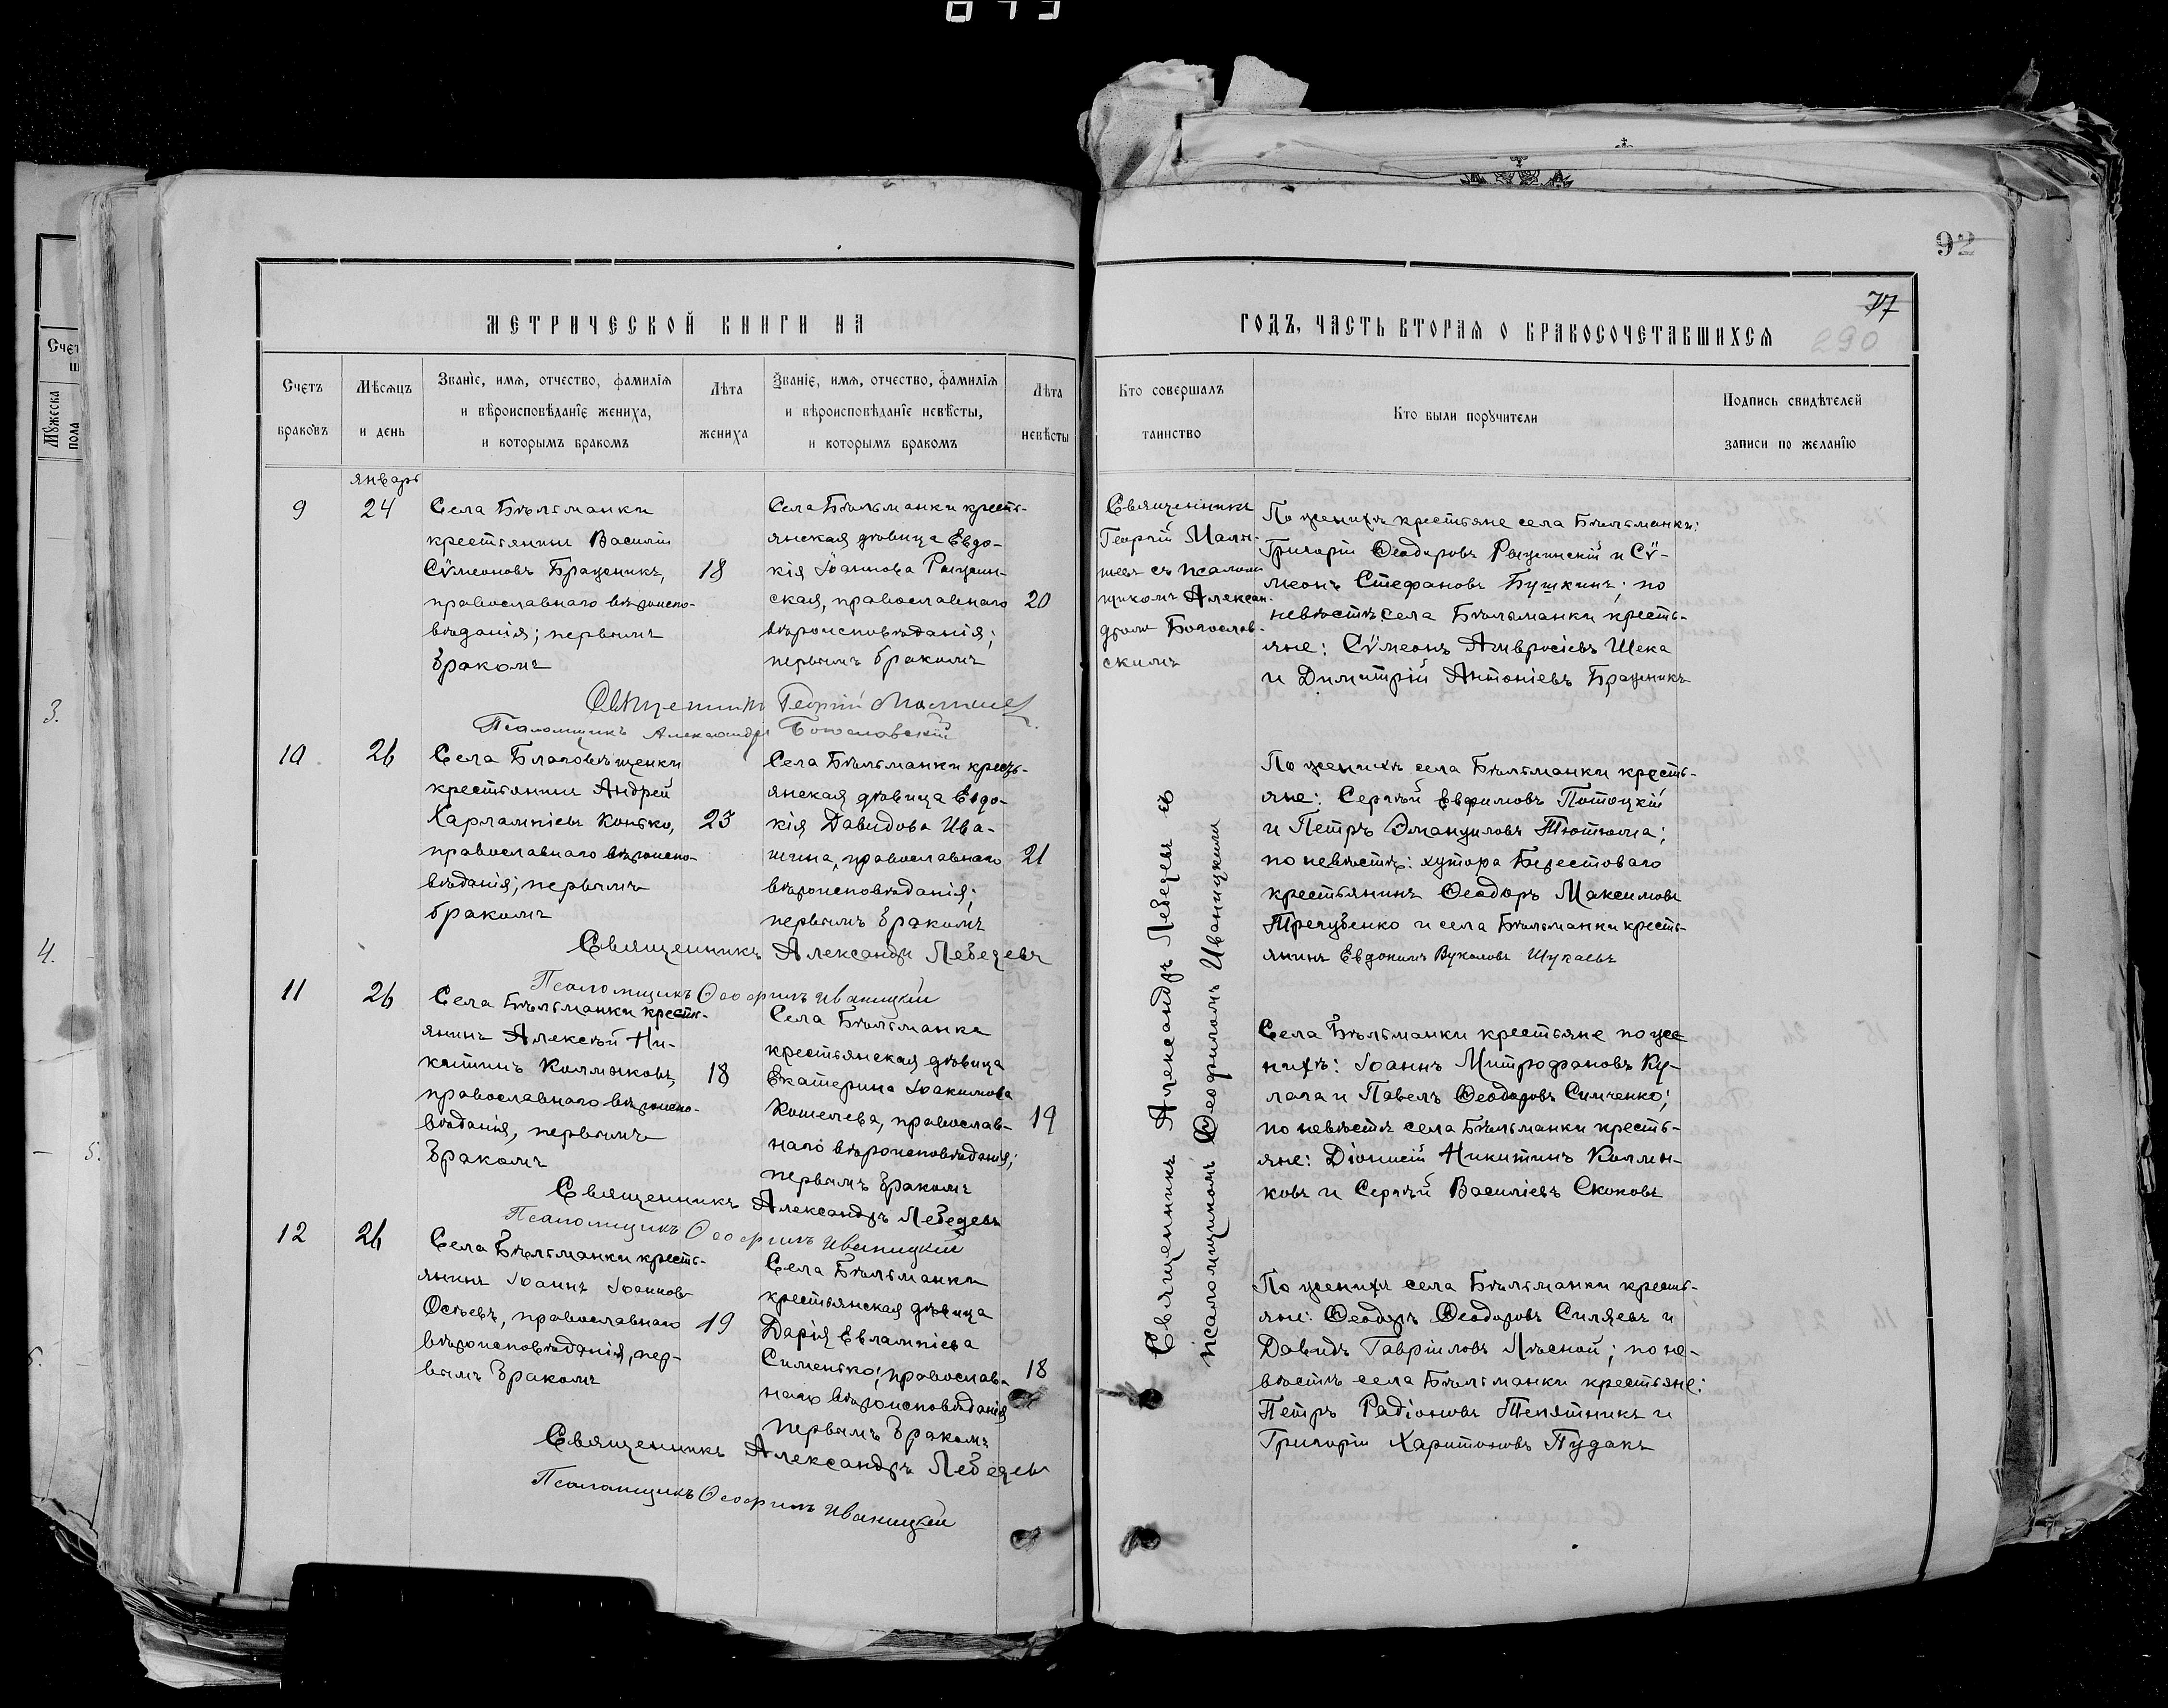 92
77
290
МЕТРИЧЕСКОЙ КНИГИ НА
ГОДЪ, ЧАСТЬ ВТОРАЯ О БРАКОСОЧЕТАВШИХСЯ
Счетъ браковъ
Мѣсяцъ и день
Званіе, имя, отчество, фамилія
и вѣроисповѣданіе жениха,
и которымъ бракомъ
Лѣта жениха
Званіе, имя, отчество, фамилія
и вѣроисповѣданіе невѣсты,
и которымъ бракомъ
Лѣта невѣсты
Кто совершалъ
таинство
Кто были поручители
Подпись свидѣтелей
записи по желанію
январь
9
24
Села Бѣльманки
крестьянинъ Василій
Сѵмеоновъ Браценикъ,
православнаго вѣроиспо-
вѣданія; первымъ
бракомъ
18
Села Бѣльманки кресть-
янская дѣвица Евдо-
кія Іоаннова Рыцин-
ская, православнаго
вѣроисповѣданія;
первымъ бракомъ
20
Священникъ
Георгій
съ псалом
щикомъ Алексан-
дромъ Богослов-
скимъ
По женихѣ крестьяне села Бѣльманки:
Григорій Ѳеодоровъ Рыцинскій и Сѵ-
меонъ Стефановъ Бушкинъ; по
невѣстѣ села Бѣльманки кресть-
яне: Сѵмеонъ Амвросіевъ Шека
и Димитрій Антоніевъ Браценикъ
Священникъ Георгій
Псаломщикъ Александръ Богословскій
10
26
Села Благовѣщенки
крестьянинъ Андрей
Харлампіевъ Конько,
православнаго вѣроиспо-
вѣданія; первымъ
бракомъ
23
Села Бѣльманки кресть-
янская дѣвица Евдо-
кія Давидова Ива-
шина, православнаго
вѣроисповѣданія;
первымъ бракомъ
21
По женихѣ села Бѣльманки кресть-
яне: Сергѣй Евфимовъ Потоцкій
и Петръ Эмануиловъ Тютюма;
по невѣстѣ: хутора Берестоваго
крестьянинъ Ѳеодоръ Максимовъ
Трегубенко и села Бѣльманки кресть-
янинъ Евдокимъ Вуколовъ Шукаевъ
Священникъ Александръ Лебедевъ
Псаломщикъ Ѳеофилъ Иваницкій
11
26
Села Бѣльманки кресть-
янинъ Алексѣй Ни-
китинъ Колмыковъ,
православнаго вѣроиспо-
вѣданія, первымъ
бракомъ
18
Села Бѣльманка
крестьянская дѣвица
Екатерина Іоакимова
Кошелева, православ-
наго вѣроисповѣданія;
первымъ бракомъ
19
Села Бѣльманки крестьяне по же
нихѣ: Іоаннъ Митрофановъ Ку-
лага и Павелъ Ѳеодоровъ Симченко;
по невѣстѣ села Бѣльманки кресть-
яне: Діонисій Никитинъ Колмы-
ковъ и Сергѣй Василіевъ Скоковъ
Священникъ Александръ Лебедевъ
Псаломщикъ Ѳеофилъ Иваницкій
12
26
Села Бѣльманки кресть-
янинъ Іоаннъ Іоанновъ
Осѣевъ, православнаго
вѣроисповѣданія, пер-
вымъ бракомъ
19
Села Бѣльманки
крестьянская дѣвица
Дарія Евлампіева
Сименько; православ-
наго вѣроисповѣданія
первымъ бракомъ
18
По женихѣ села Бѣльманки кресть-
яне: Ѳеодоръ Ѳеодоровъ Силяевъ и
Давидъ Гавріиловъ Лѣсной; по не-
вѣстѣ села Бѣльманки крестьяне:
Петръ Радіоновъ Тепятникъ и
Григорій Харитоновъ Пудакъ
Священникъ Александръ Лебедевъ
Псаломщикъ Ѳеофилъ Иваницкій
Священникъ Александръ Лебедевъ съ
псаломщикомъ Ѳеофиломъ Иваницкимъ
Счет
Мужеска
пола
3.
4.
5.